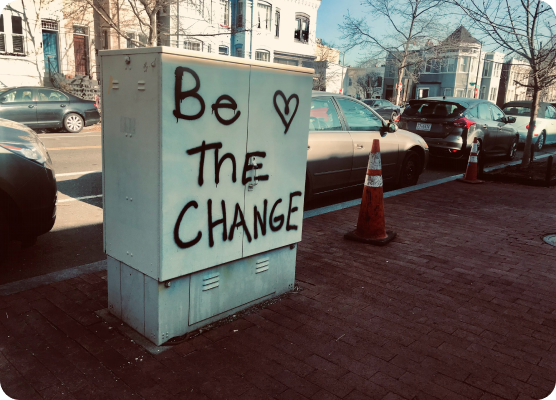 Be
The
CHANGE